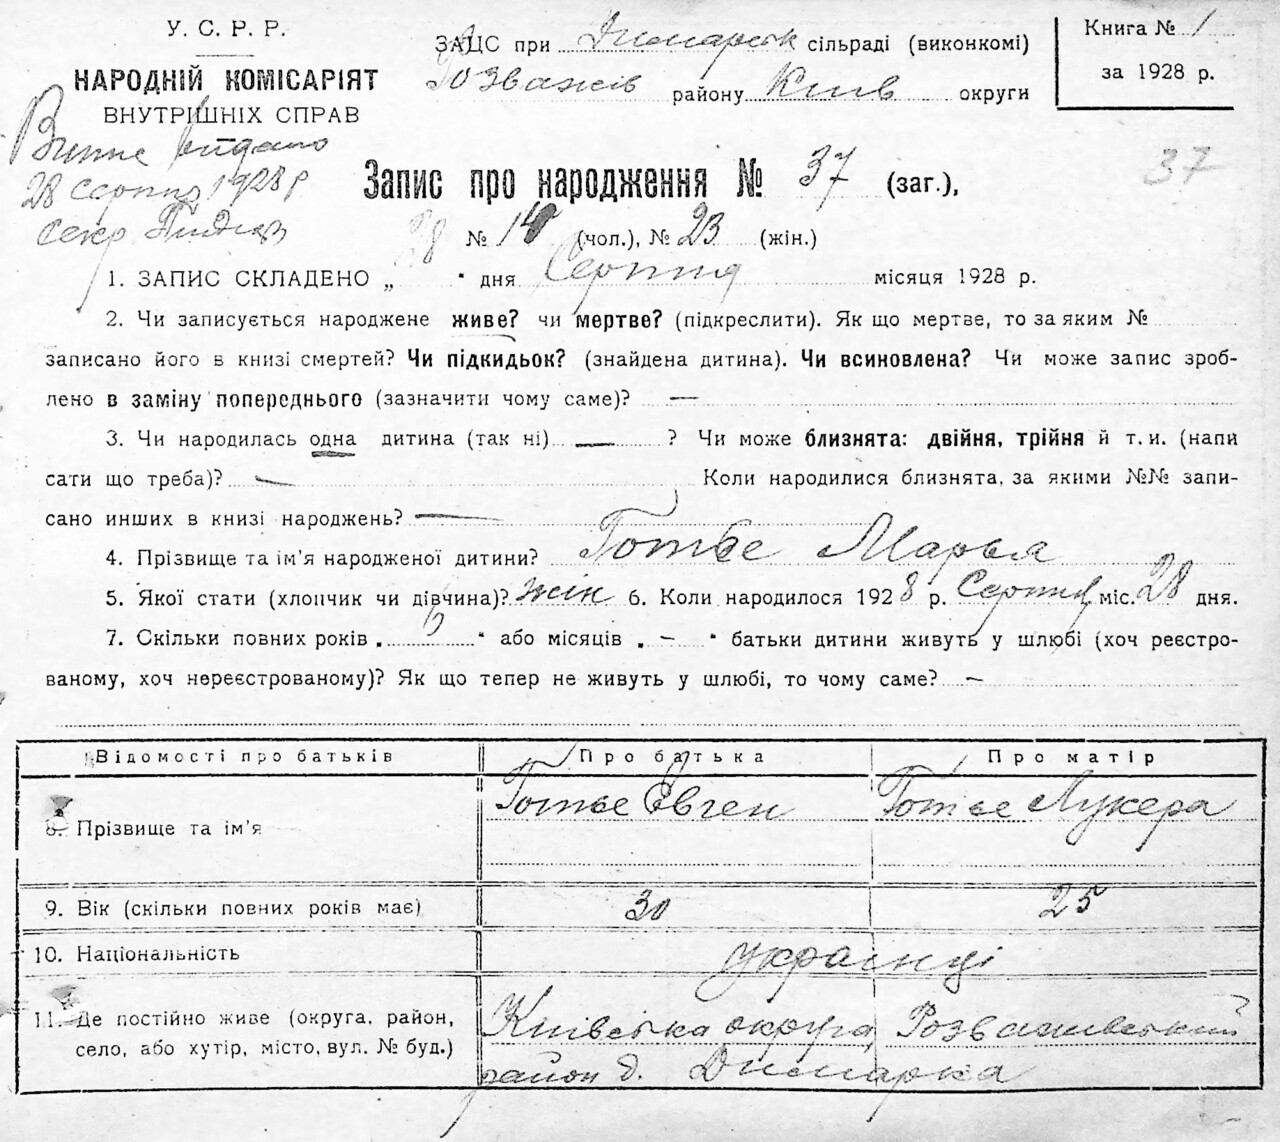 У. С. Р. Р.
НАРОДНІЙ КОМІСАРІЯТ
ВНУТРІШНІХ СПРАВ
ЗАЦС при Димарськ сільраді (виконкомі)
Розважів району Київ округи
Книга № 1
за 1928 р.
видано
28 Серпня 1928 р
секр
Запис про народження № 37 (заг.),
37
№ 14 (чол.), № 23 (жін.)
1. ЗАПИС СКЛАДЕНО „ 28 " дня Серпня місяця 1928 р.
2. Чи записується народжене живе? чи мертве? (підкреслити). Як що мертве, то за яким №
записано його в книзі смертей? Чи підкидьок? (знайдена дитина). Чи всиновлена? Чи може запис зроб-
лено в заміну попереднього (зазначити чому саме)? —
3. Чи народилась одна дитина (так ні) — ? Чи може близнята: двійня, трійня й т. и. (напи
сати що треба)? — Коли народилися близнята, за якими №№ запи-
сано инших в книзі народжень? —
4. Прізвище та ім'я народженої дитини? Готье Марья
5. Якої стати (хлопчик чи дівчина)? жін 6. Коли народилося 1928 р. Серпня міс. 28 дня.
7. Скільки повних років „ 6 " або місяців „ — " батьки дитини живуть у шлюбі (хоч реєстро-
ваному, хоч нереєстрованому)? Як що тепер не живуть у шлюбі, то чому саме? —
Відомості про батьків Про батька Про матір
8. Прізвище та ім'я Готье Євген Готье Лукера
9. Вік (скільки повних років має) 30 25
10. Національність українці
11. Де постійно живе (округа, район, село, або хутір, місто, вул. № буд.) Київська округа, Розважівський
район д. Димарка